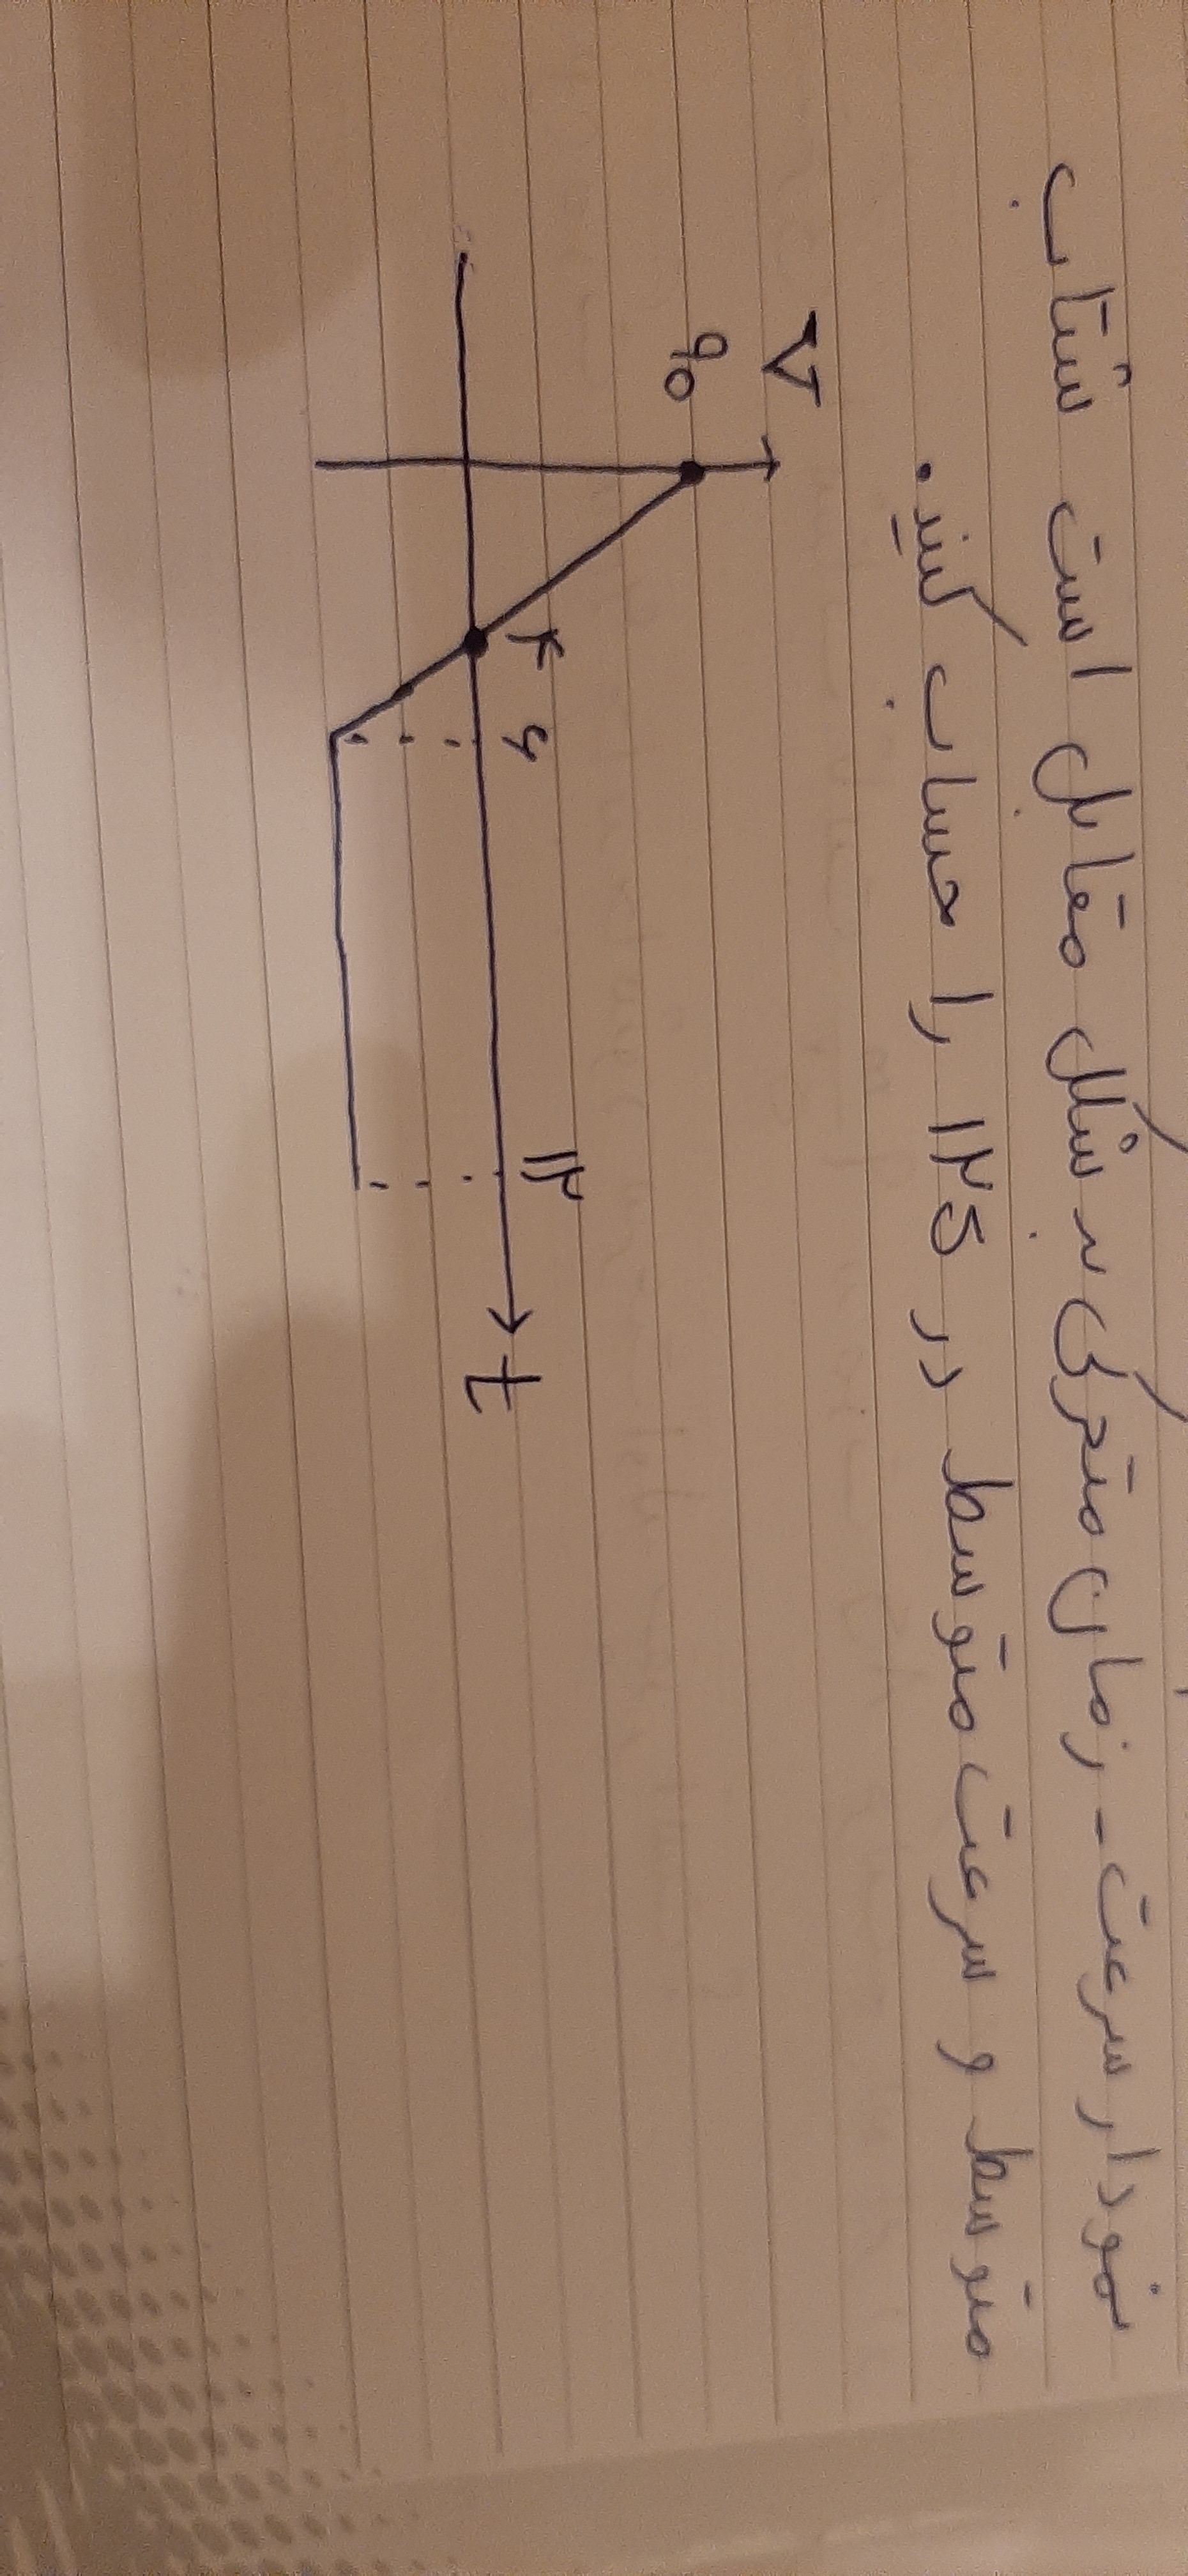 نمودار سرعت - زمان متحرکی به شکل مقابل است شتاب
متوسط و سرعت متوسط در ۱۲s را حساب کنید.
V
۹۰
۴
۶
۱۲
t